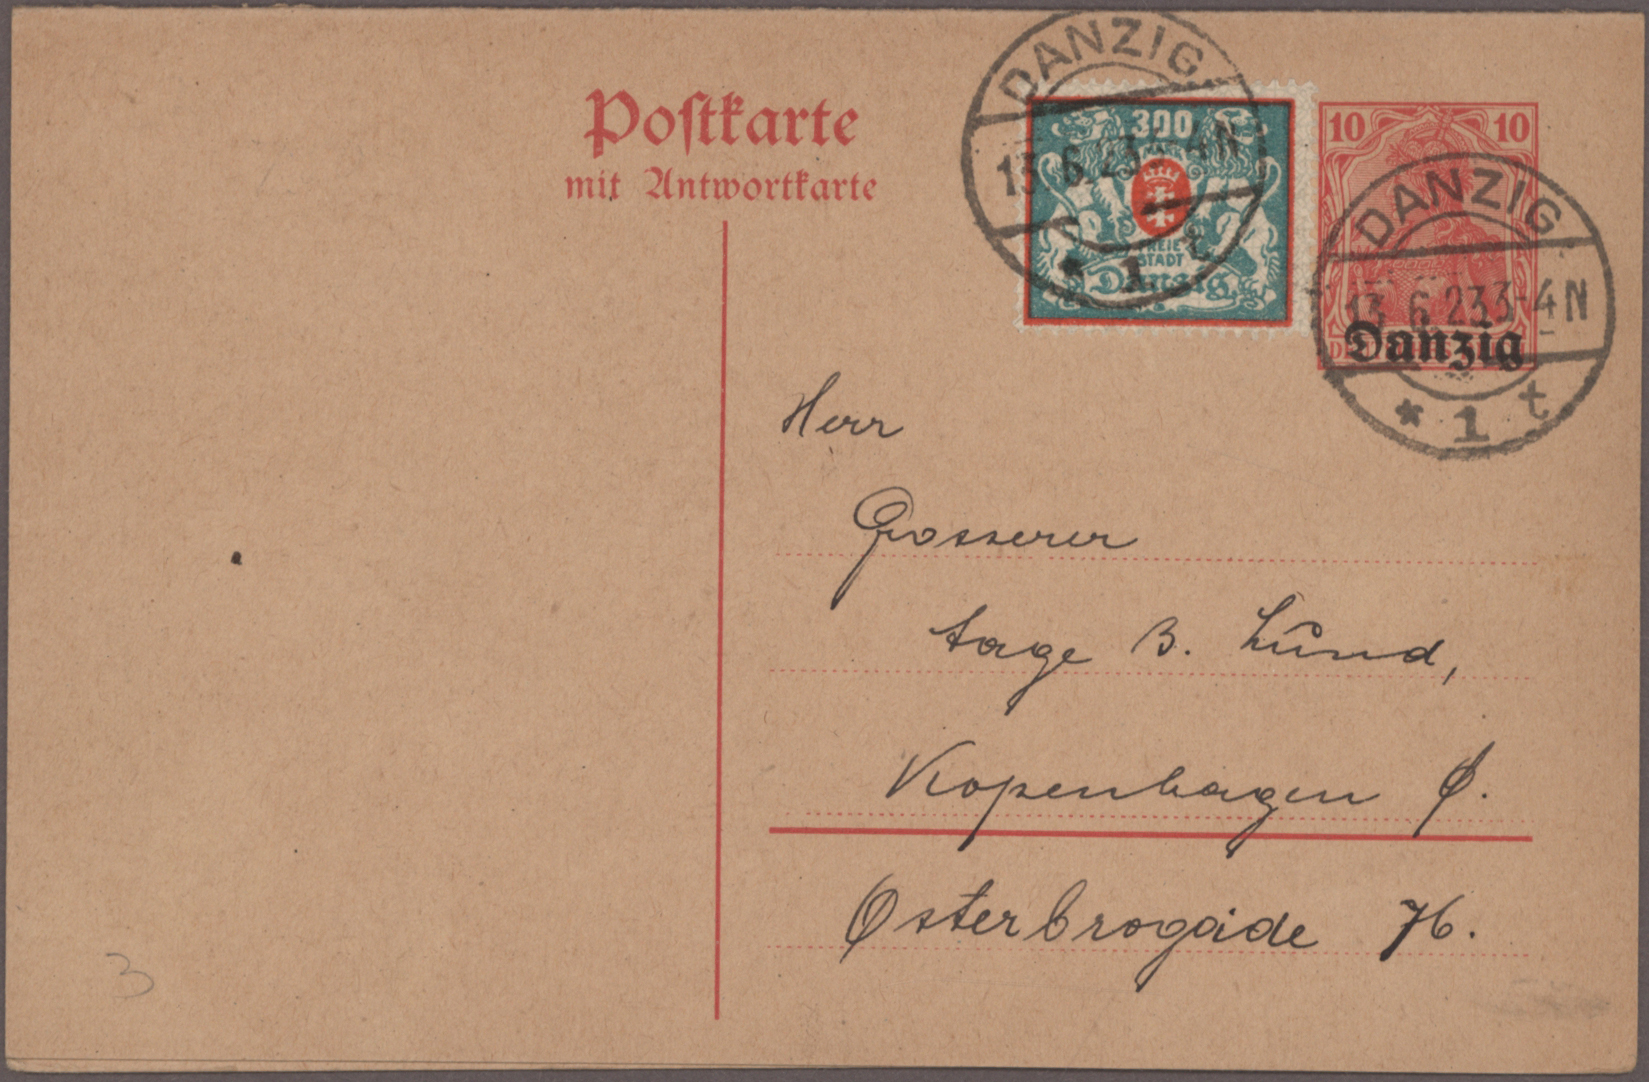 Postkarte
mit Antwortkarte
DANZIG
13.6.23 3-4 N
* 1 t
300
FREIE
STADT
Danzig
10 10
DANZIG
13.6.23 3-4 N
Danzig
* 1 t
Herr
Grosserer
Aage B. Lund,
Kopenhagen Ø.
Østerbrogade 76.
3